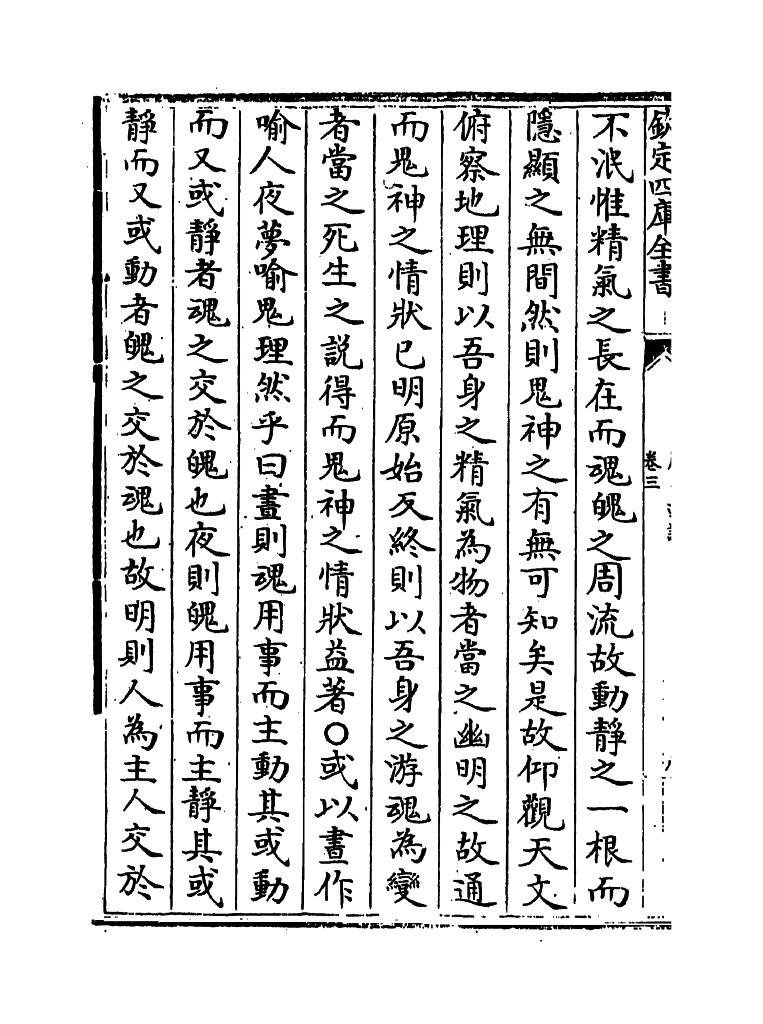 欽定四庫全書
卷三
不泯惟精氣之長在而魂魄之周流故動靜之一根而
隱顯之無間然則鬼神之有無可知矣是故仰觀天文
俯察地理則以吾身之精氣為物者當之幽明之故通
而鬼神之情狀已明原始反終則以吾身之游魂為變
者當之死生之説得而鬼神之情狀益著〇或以晝作
喻人夜夢喻鬼理然乎曰晝則魂用事而主動其或動
而又或靜者魂之交於魄也夜則魄用事而主靜其或
靜而又或動者魄之交於魂也故明則人為主人交於